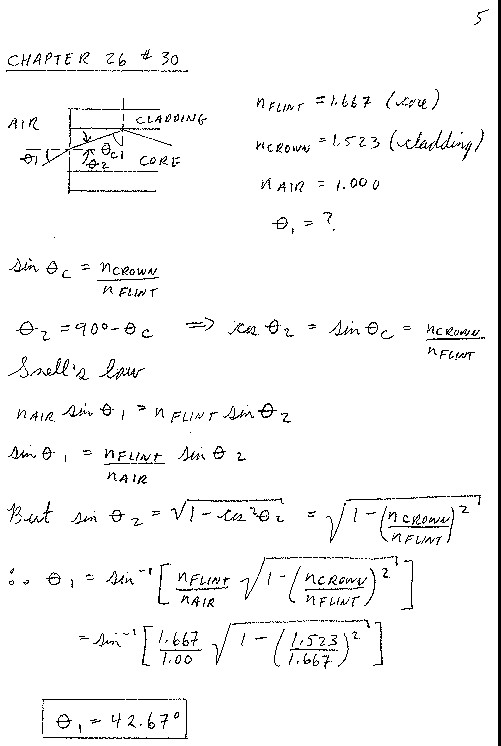 5
CHAPTER 26 # 30
AIR
CLADDING
θ1
θ2
θc1
CORE
nFLINT = 1.667 (core)
nCROWN = 1.523 (cladding)
nAIR = 1.000
θ1 = ?
sin θc = nCROWN / nFLINT
θ2 = 90° - θc ⇒ cos θ2 = sin θc = nCROWN / nFLINT
Snell's law
nAIR sin θ1 = nFLINT sin θ2
sin θ1 = nFLINT / nAIR sin θ2
But sin θ2 = √(1 - cos²θ2) = √(1 - (nCROWN / nFLINT)²)
∴ θ1 = sin⁻¹ [ nFLINT / nAIR √(1 - (nCROWN / nFLINT)²) ]
= sin⁻¹ [ 1.667 / 1.00 √(1 - (1.523 / 1.667)²) ]
θ1 = 42.67°